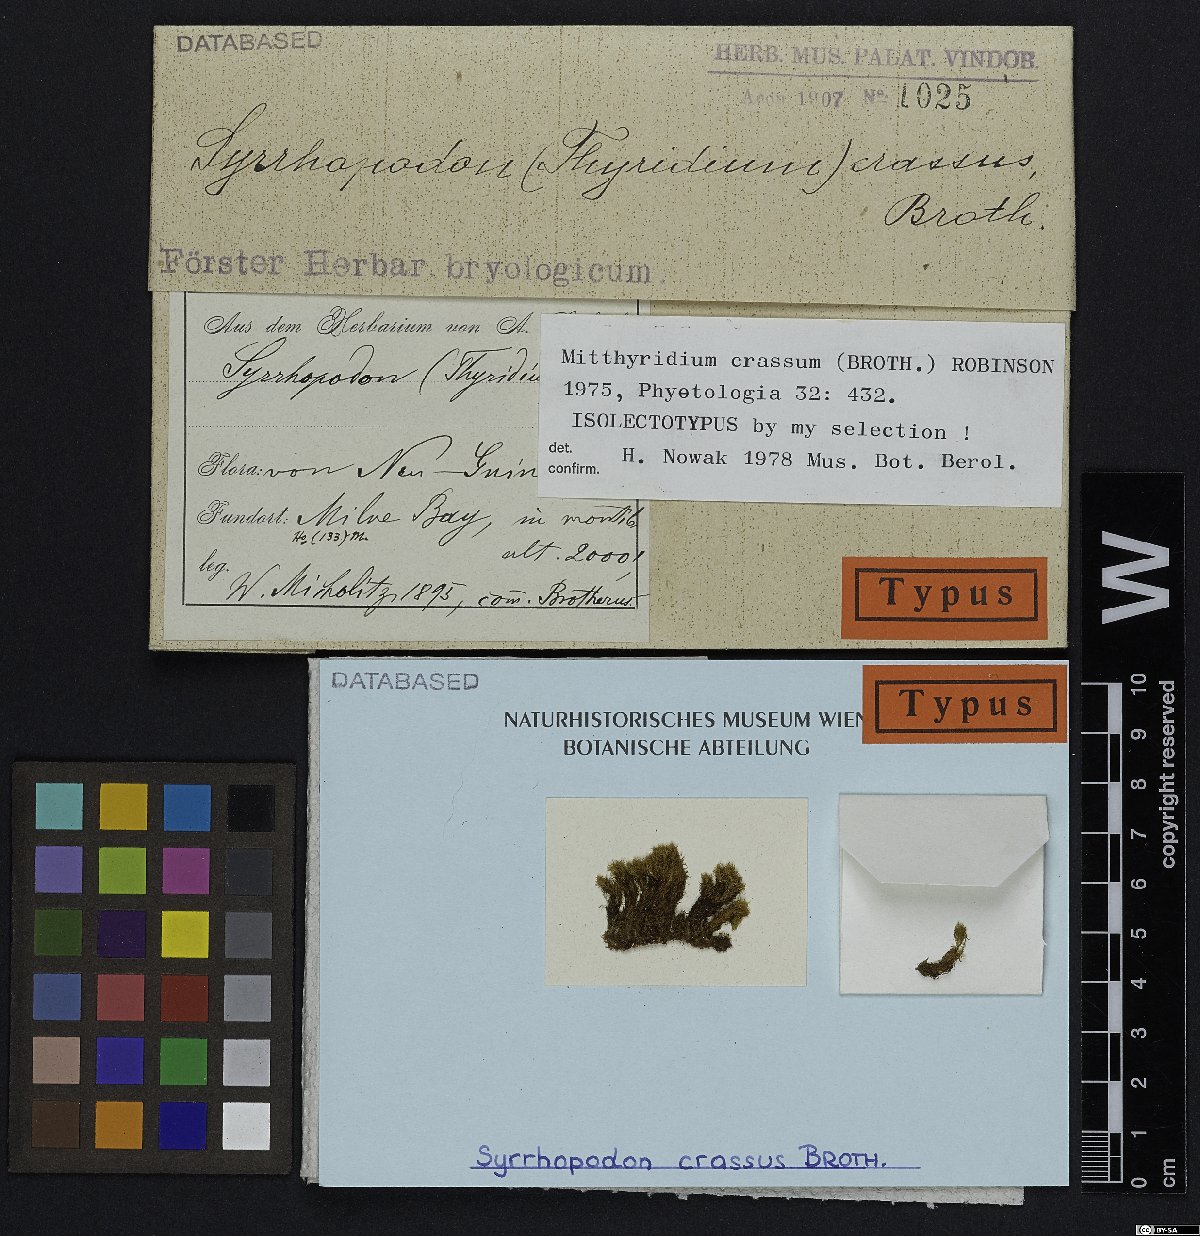 DATABASED
HERB. MUS. PALAT. VINDOB.
Acqu. 1907 No. 1025
Syrrhopodon (Thyridium) crassus,
Broth.
Förster Herbar. bryologicum.
Aus dem Herbarium von A.
Syrrhopodon (Thyridiu
Flora: von Neu-Guin
Fundort: Milne Bay, in montib
No (133) M.
alt. 2000'
leg.
W. Micholitz, 1895, com. Brotherus.
Mitthyridium crassum (BROTH.) ROBINSON
1975, Phyotologia 32: 432.
ISOLECTOTYPUS by my selection !
det.
confirm. H. Nowak 1978 Mus. Bot. Berol.
Typus
DATABASED
Typus
NATURHISTORISCHES MUSEUM WIEN
BOTANISCHE ABTEILUNG
Syrrhopodon crassus BROTH.
W
10
9
8
7
6
5
4
3
2
1
0
cm
copyright reserved
cc BY-SA